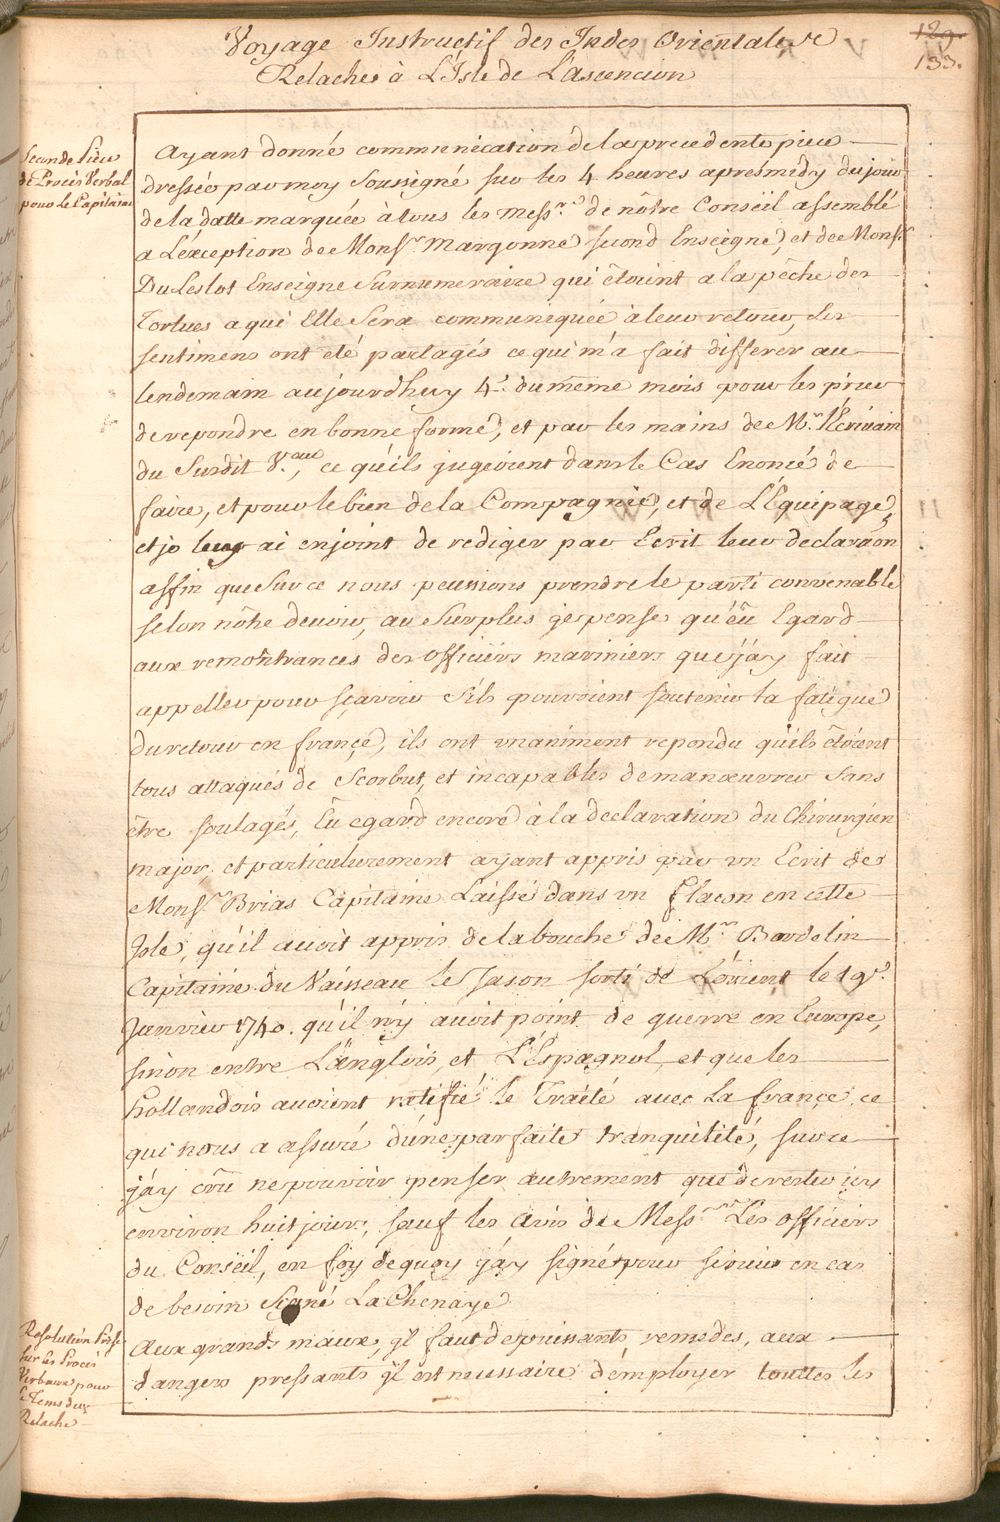 Voyage Instructif des Indes Orientales
129.
133.
Relaches à L'Isle de L'ascencion
Seconde Piece
de Procés Verbal
pour le Capitaine
Ayant donné communication de la precedente piece
dressée par moy Soussigné sur les 4 heures aprésmidy du jour
de la datte marquée à tous les Mess.rs de nôtre Conseïl assemblé
a L'éxception de Mons.r Margonne second Enseigne, et de Mons.r
Du Leslot Enseigne Surnumeraire qui étoint a la pêche des
Tortues a qui Elle Sera communiquée à leur retour, Les
sentimens ont été partagés ce qui m'a fait differer au
lendemain aujourdhuy 4.e du même mois pour les prier
de repondre en bonne forme, et par les mains de M.r l'Ecrivain
du Surdit V.au, ce qu'ils jugeoient dans le Cas Enoncé de
faire, et pour le bien de la Compagnie, et de L'Equipage,
et je leur ai enjoint de rediger par Ecrit leur declaraon
affin que Sur ce nous peussions prendre le parti convenable
selon nôtre devoir, au Surplus je pense qu'eû Egard
aux remontrances des officiërs mariniers que j'ay fait
appeller pour sçavoir S'ils pouroient soutenir la fatigue
du retour en françe, ils ont unaniment repondu qu'ils étoient
tous attaqués de Scorbut, et incapables de manœuvrer Sans
être soulagés, Eû egard encore à la declaration du Chirurgien
major, et particulierement ayant appris par un Ecrit de
Mons.r Brias Capitaine Laissé dans un flacon en cette
Isle, qu'il avoit appris de la bouche de M.r Bardelin
Capitaine du Vaisseau le Jason sorti de L'orient le 19.e
Janvier 1740. qu'il n'y avoit point de guerre en Europe,
sinon entre L'anglois, et L'Espagnol, et que les
hollandois avoient ratifié le Traité avec La françe, ce
qui nous a assuré d'une parfaite tranquilité, sur ce
j'ay crû ne pouvoir penser autrement que de rester icy
environ huit jours, sauf les avis de Mess.rs Les officiers
du Conseil, en foy de quoy j'ay signé pour servir en cas
de besoin Signé La Chenaye
Resolution Prise
sur les Procés
Verbaux pour
le Tems du
Relache
Aux grands maux, il faut de puissants remedes, aux
dangers pressants il est necessaire d'employer touttes les